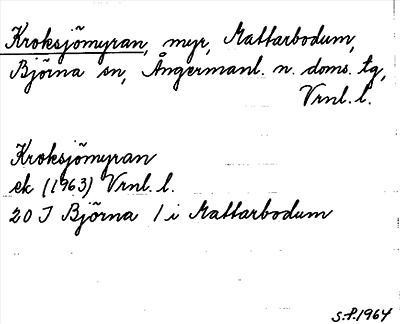 Kroksjömyran, myr, Mattarbodum,
Björna sn, Ångermanl. n. doms. tg,
Vrnl. l.
Kroksjömyran
ek (1963) Vrnl. l.
20 J Björna 1 i Mattarbodum
S.P. 1964